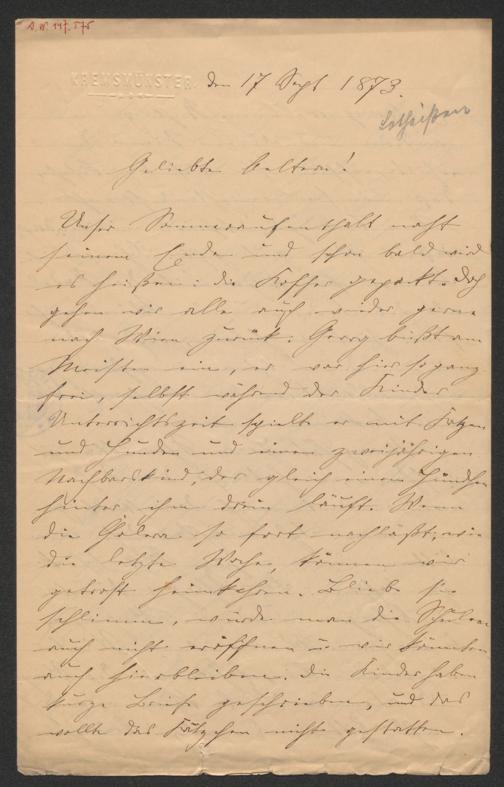 A. N. 447.575
KREMSMÜNSTER. den 17 Sept 1873.
Lotheißen
Geliebte Aeltern!
Unser Sommeraufenthalt naht
seinem Ende und schon bald wird
es heißen: die Koffer gepackt. Doch
gehen wir alle auch wieder gerne
nach Wien zurück. Georg büßt am
Meisten ein, er war hier so ganz
frei, selbst während der Kinder
Unterrichtszeit spielte er mit Katzen
und Hunden und einem zweijährigen
Nachbarskind, das gleich einem Hündchen
hinter ihm drein läuft. Wenn
die Cholera so fort nachläßt, wie
die letzte Woche, können wir
getrost heimkehren. Bliebe sie
schlimm, würde man die Schulen
auch nicht eröffnen u wir könnten
auch hierbleiben. Die Kinder haben
kurze Briefe geschrieben, und das
wollte das Kätzchen nicht gestatten.